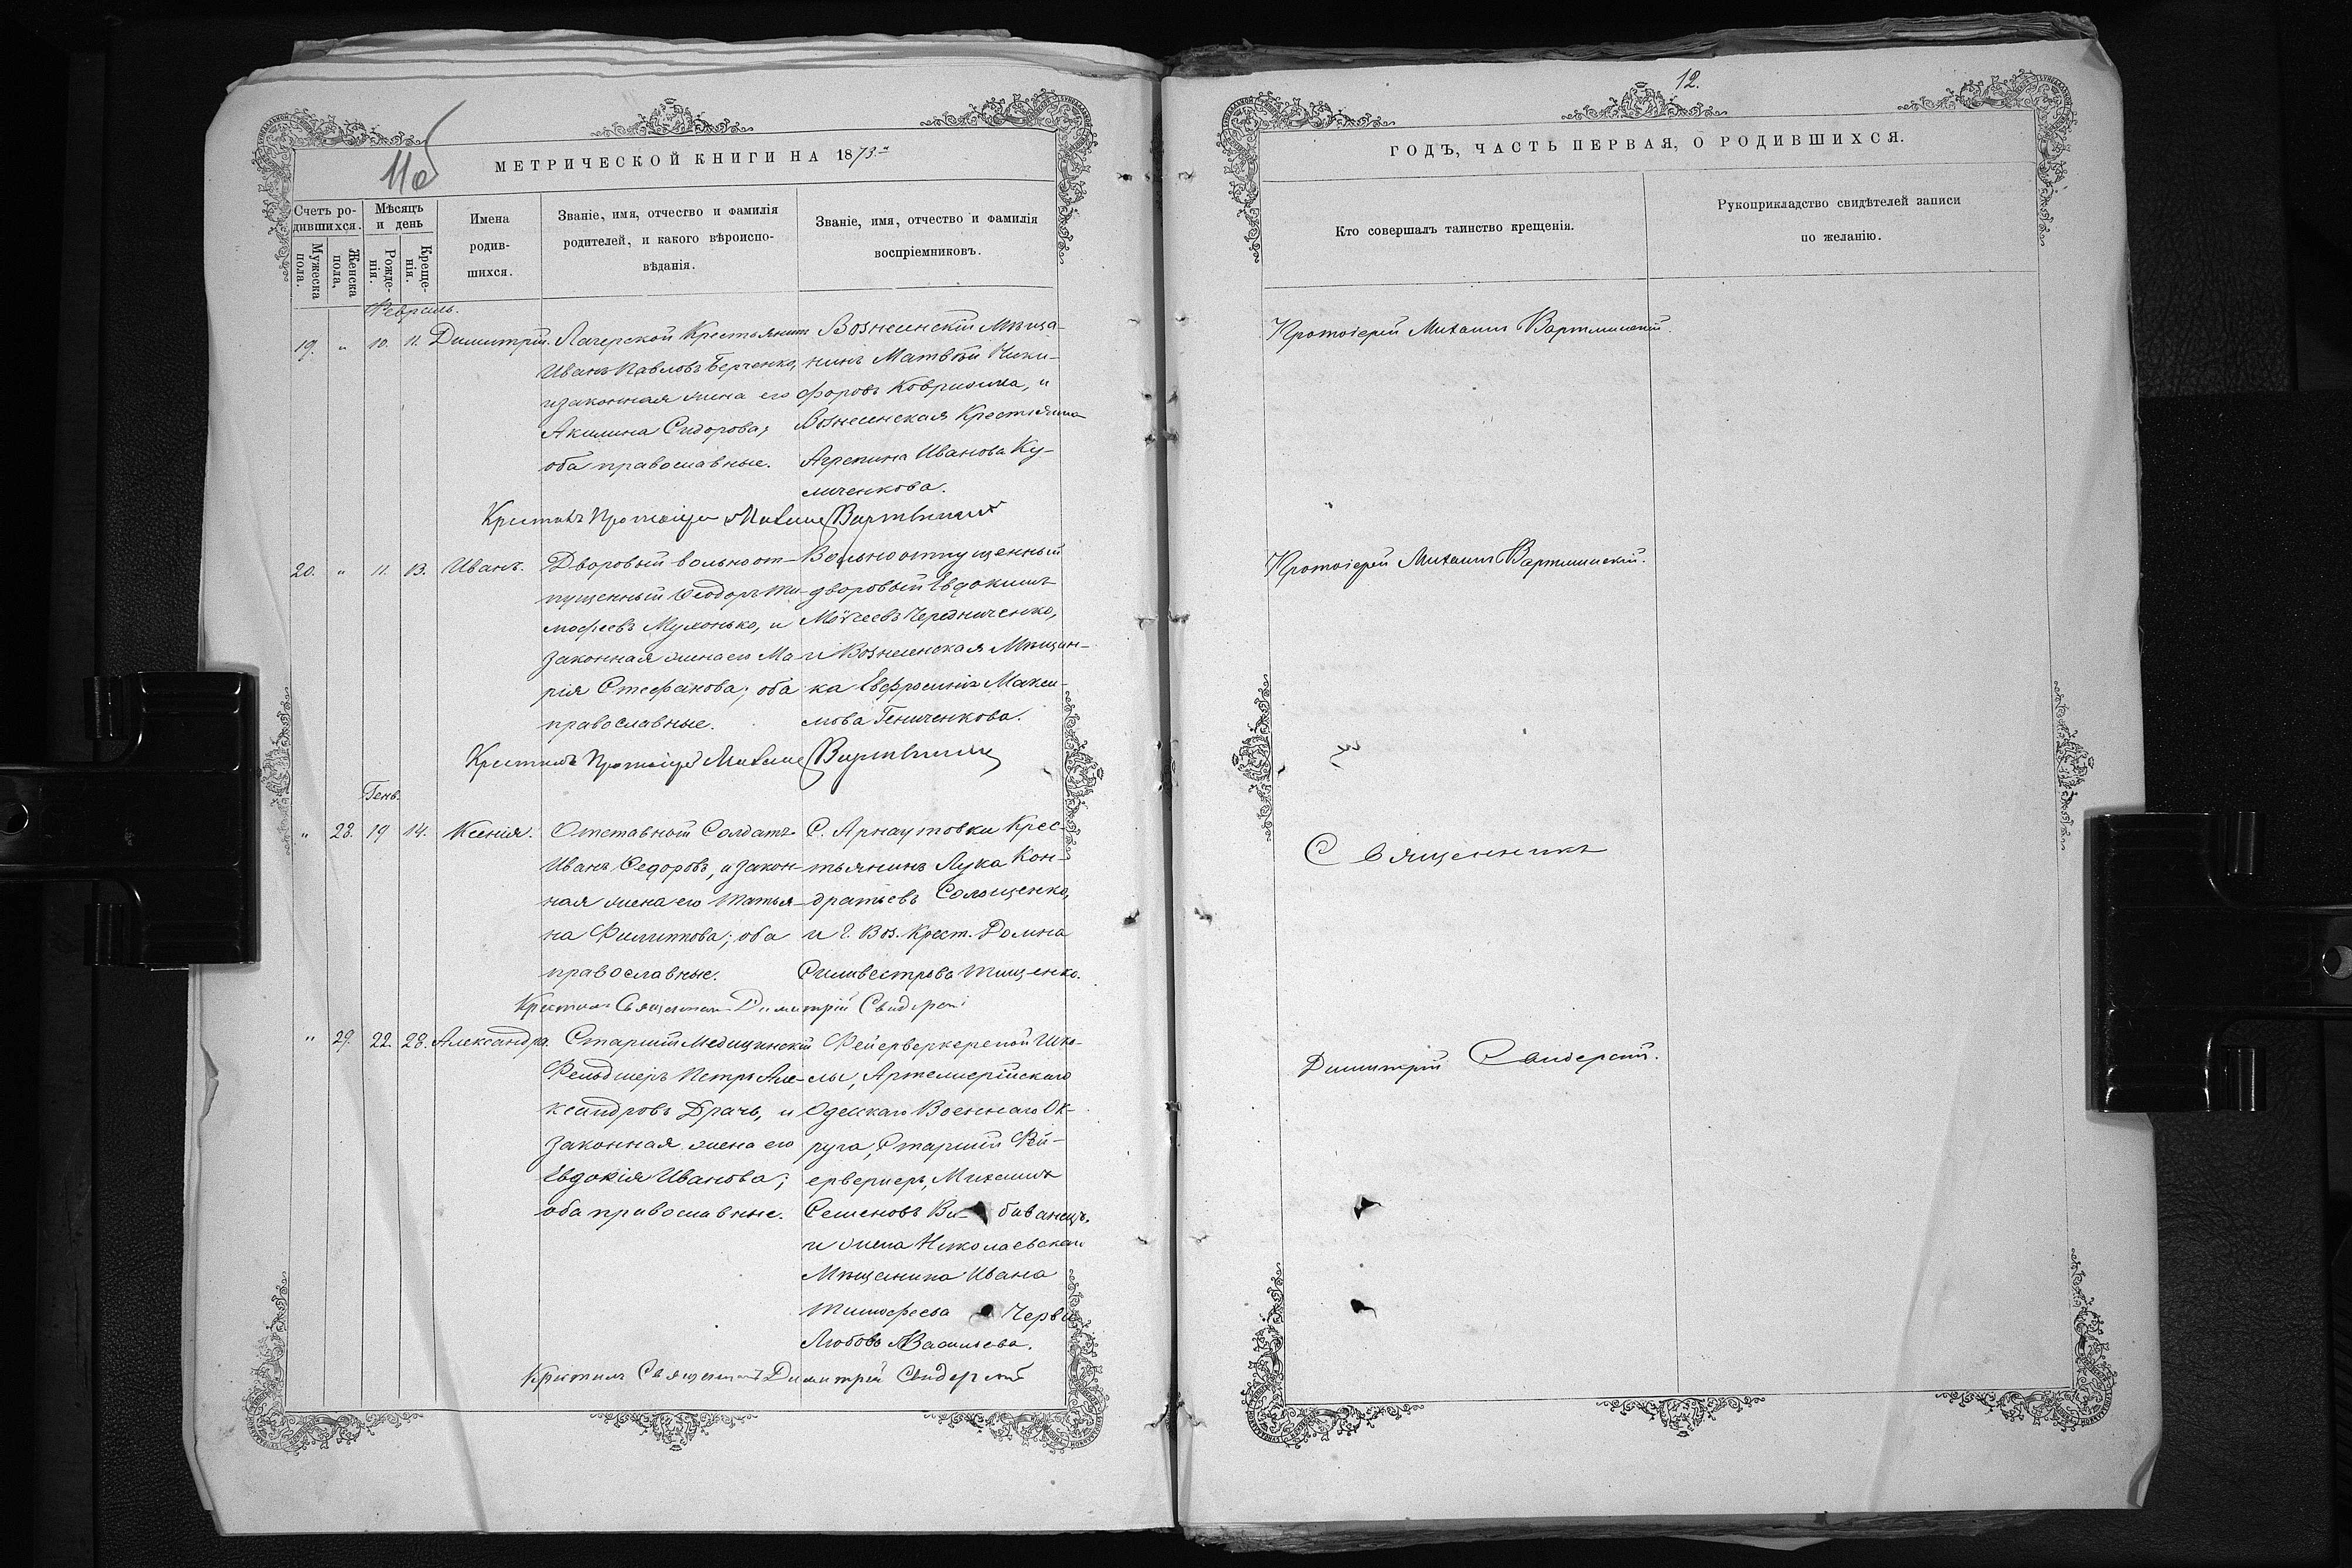 11 об
МЕТРИЧЕСКОЙ КНИГИ НА 1873й
Счетъ ро-
дившихся.
Мужеска
пола.
Женска
пола.
Мѣсяцъ
и день
Рожде-
нія.
Креще-
нія.
Имена
родив-
шихся.
Званіе, имя, отчество и фамилія
родителей, и какого вѣроиспо-
вѣданія.
Званіе, имя, отчество и фамилія
воспріемниковъ.
Февраль.
19. " 10. 11. Димитрій.
Лагерской Крестьянинъ
Иванъ Павловъ Берченко,
и законная жена его
Акилина Сидорова;
оба православные.
Вознесенскій Мѣща-
нинъ Матвѣй Ники-
форовъ Ковришка, и
Вознесенская Крестьянка
Агрепина Иванова Ку-
личенкова.
Крестилъ Протоіерей Михаилъ
20. " 11. 13. Иванъ.
Дворовый вольноот-
пущенный Ѳеодоръ Ти-
мофеевъ Мужонько, и
законная жена его Ма-
рія Стефанова; оба
православные.
Вольноотпущенный
дворовый Евдокимъ
Моѵсеевъ Чередниченко,
и Вознесенская Мѣщан-
ка Евфросинія Макси-
мова Гениченкова.
Крестилъ Протоіерей Михаилъ
Генв.
" 28. 19 14. Ксенія.
Отставной Солдатъ
Иванъ Ѳедоровъ, и закон-
ная жена его Татья-
на Филиппова; оба
православные.
С. Арнаутовки Крес-
тьянинъ Лука Кон-
дратьевъ Солощенко,
и г. Воз. Крест. Домна
Сильвестрова Тищенко.
Крестилъ Священникъ Димитрій Свидерскій
" 29. 22. 28. Александра.
Старшій Медицинскій
Фельдшеръ Петръ Але-
ксандровъ Драчъ, и
законная жена его
Евдокія Иванова;
оба православные.
Фейерверкерской Шко-
лы, Артеллерійскаго
Одесскаго Военнаго Ок-
руга, Старшій Фей-
ерверкеръ, Михаилъ
Семеновъ Ви- биванецъ,
и жена Николаевскаго
Мѣщанина Ивана
Тимофеева Черви
Любовь Васильева.
Крестилъ Священникъ Димитрій Свидерскій
12.
ГОДЪ, ЧАСТЬ ПЕРВАЯ, О РОДИВШИХСЯ.
Кто совершалъ таинство крещенія.
Рукоприкладство свидѣтелей записи
по желанію.
Протоіерей Михаилъ
Протоіерей Михаилъ
Священникъ
Димитрій Свидерскій.